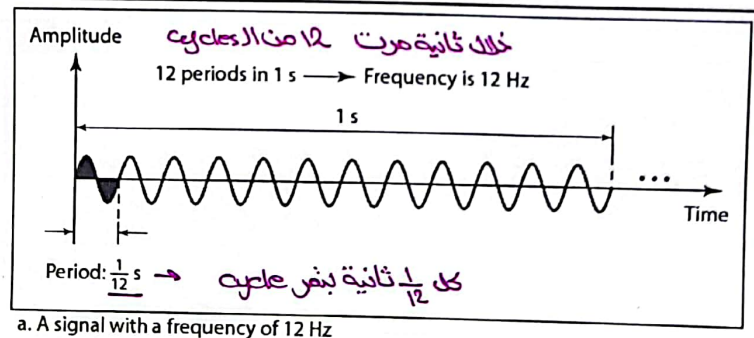 Amplitude
خلال ثانية مرت 12 من الـ cycles
12 periods in 1 s → Frequency is 12 Hz
1 s
...
Time
Period: 1/12 s → كل 1/12 ثانية بتمر cycle
a. A signal with a frequency of 12 Hz